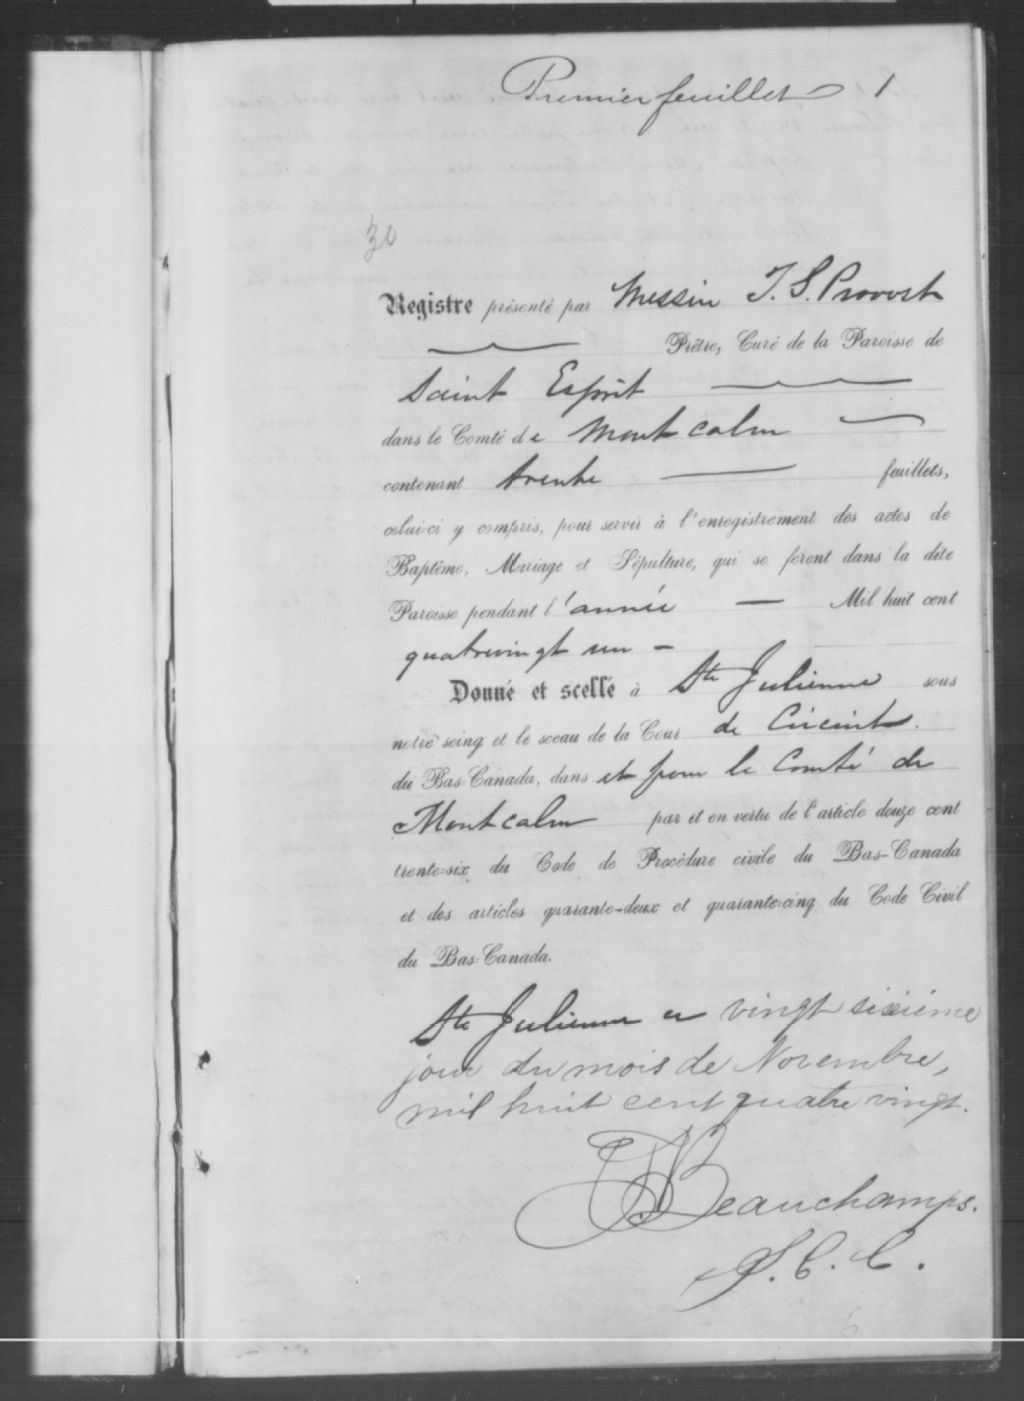 Premier feuillet 1
30
Registre présenté par Messire T. S. Provost
Prêtre, Curé de la Paroisse de
Saint Esprit
dans le Comté de Montcalm
contenant trente feuillets,
celui-ci y compris, pour servir à l'enregistrement des actes de
Baptême, Mariage et Sépulture, qui se feront dans la dite
Paroisse pendant l'année Mil huit cent
quatrevingt un
Donné et scellé à Ste Julienne sous
notre seing et le sceau de la Cour de Circuit
du Bas-Canada, dans et pour le Comté de
Montcalm par et en vertu de l'article douze cent
trente-six du Code de Procédure civile du Bas-Canada
et des articles quarante-deux et quarante-cinq du Code Civil
du Bas-Canada.
Ste Julienne ce vingt sixième
jour du mois de Novembre,
mil huit cent quatre vingt.
Beauchamps.